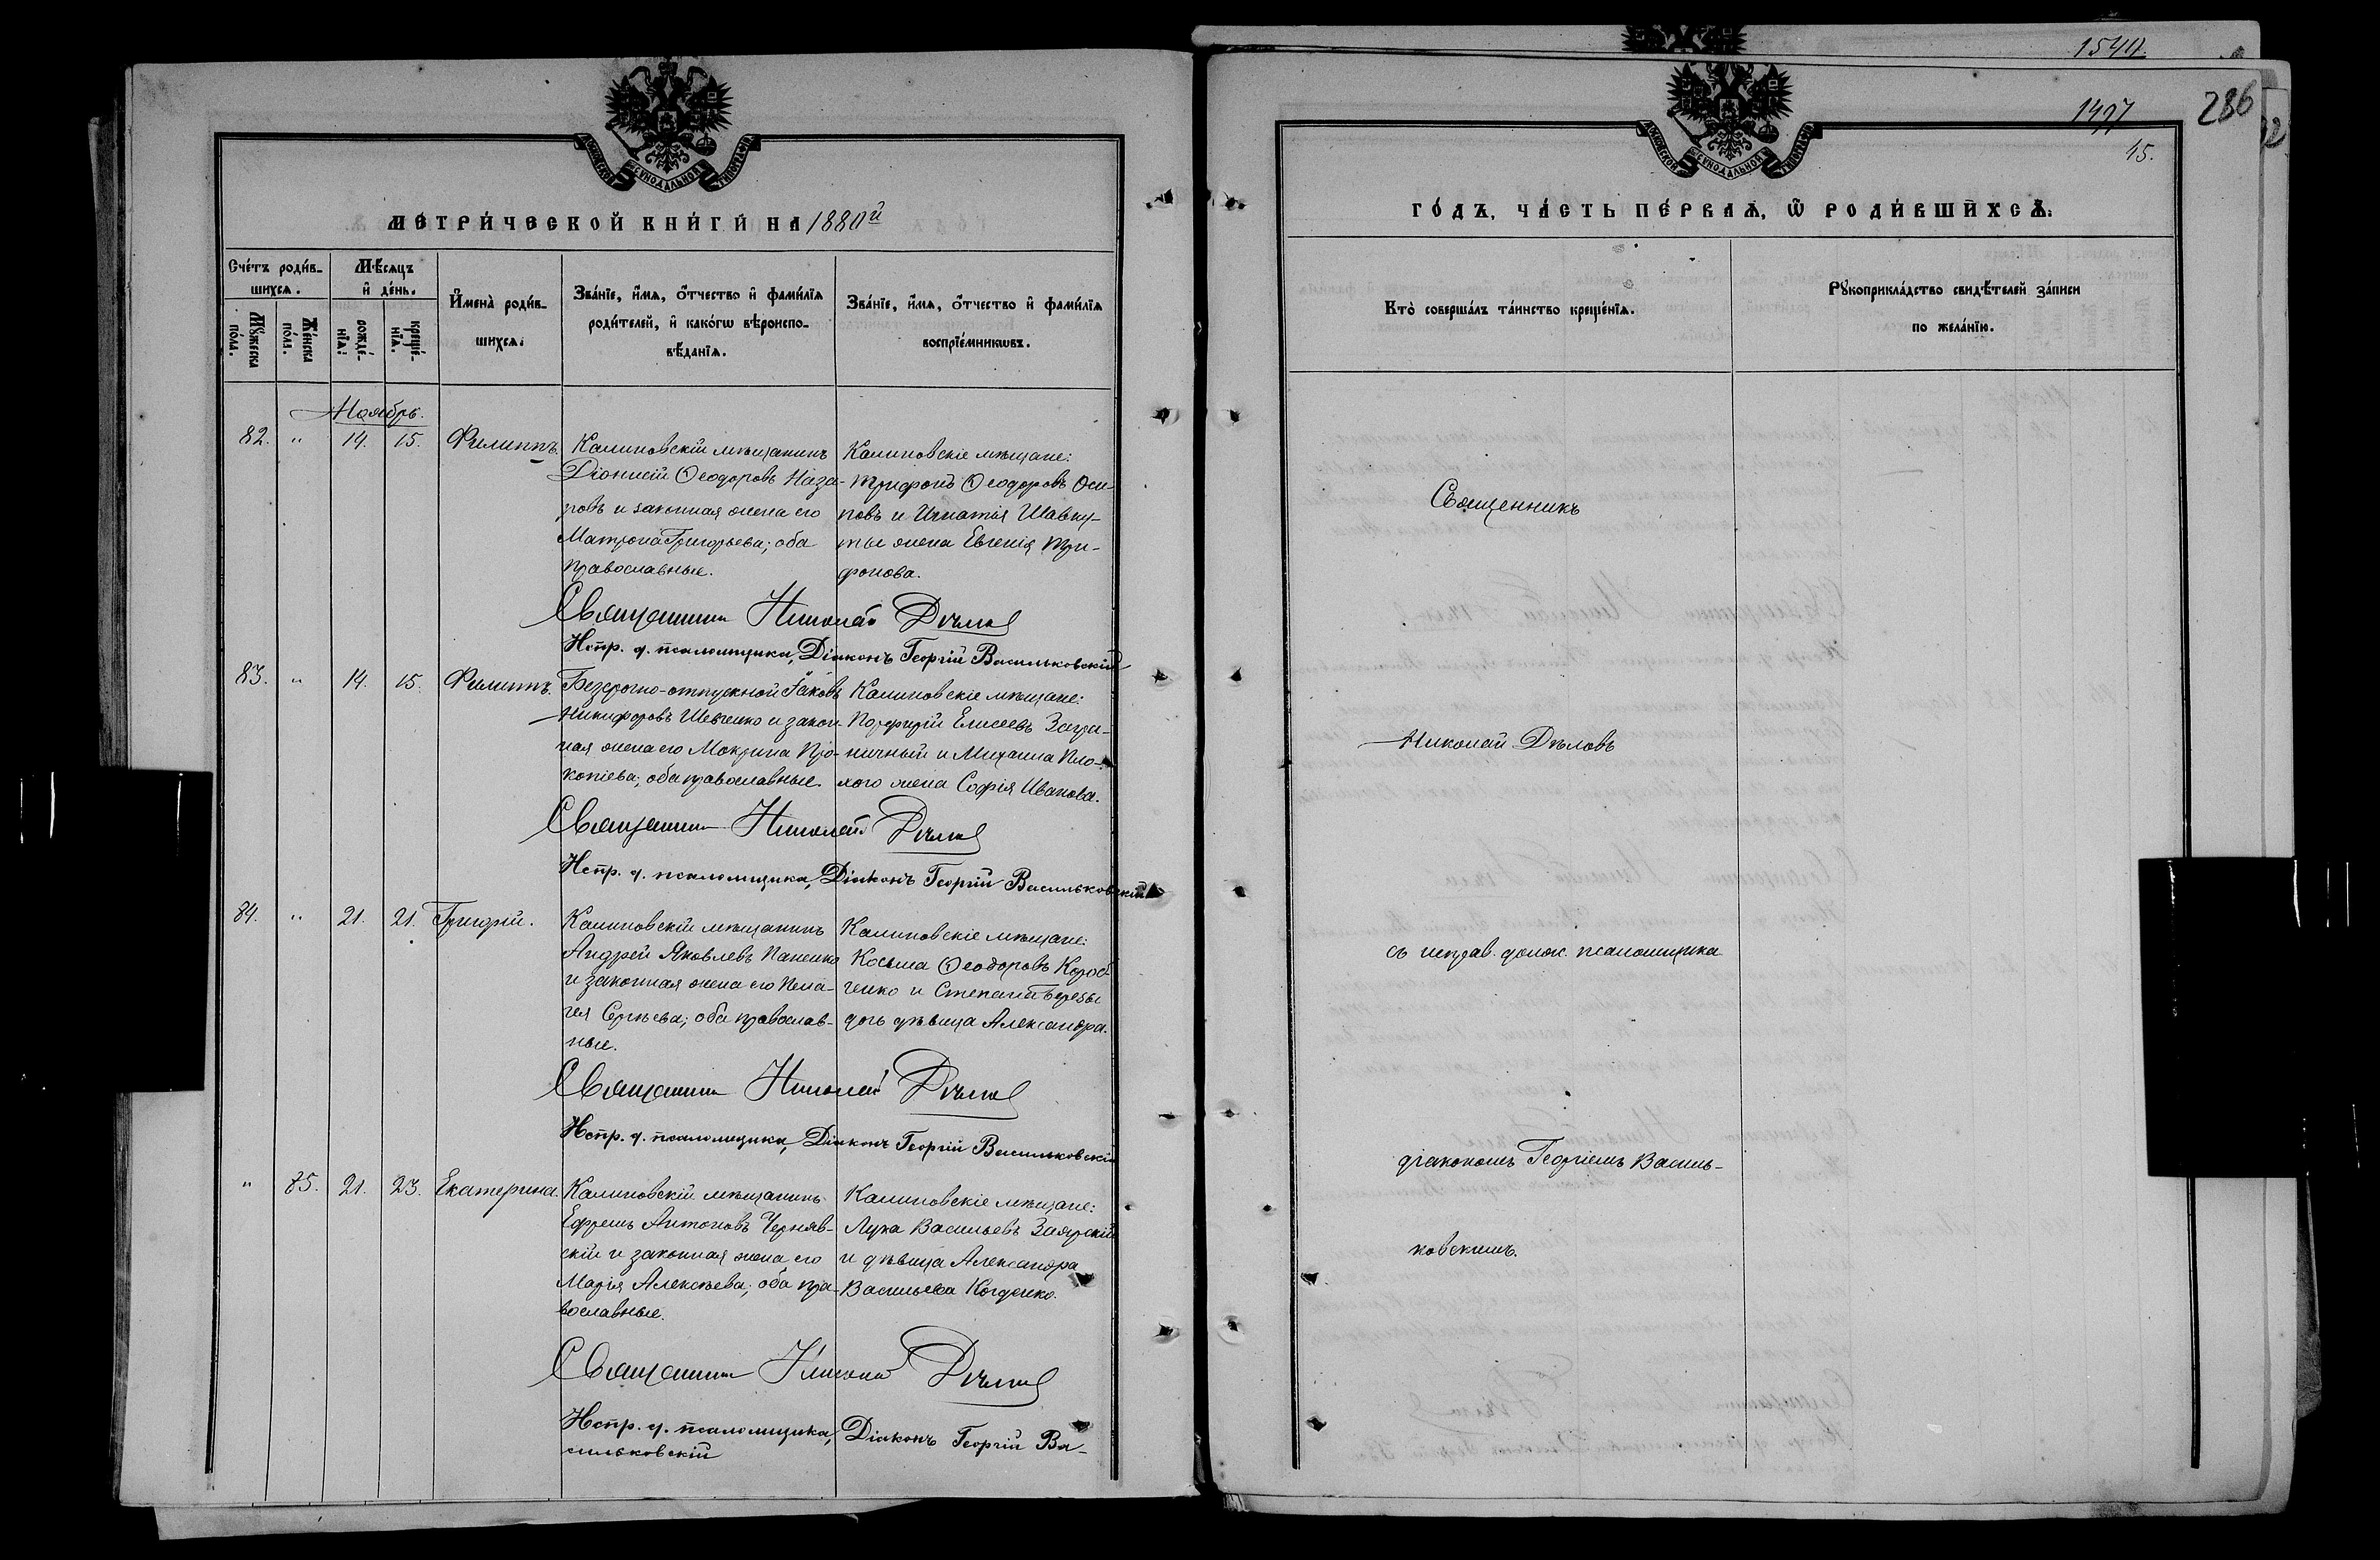 1544.
286
1497
15.
МОСКОВСКОЙ СѴНОДАЛЬНОЙ ТИПОГРАФІИ
МЕТРИ́ЧЕСКОЙ КНИ́ГИ НА 1880й
Сче́тъ роди́в-
шихся.
Мꙋжеска по́ла.
Же́нска по́ла.
Мѣ́сяцъ
и де́нь.
рожде́-
нїя.
креще́-
нїя.
Имена̀ роди́в-
шихся.
Зва́нїе, и́мя, о́тчество и фами́лїя
роди́телей, и како́гѡ вѣроиспо-
вѣ́данїя.
Зва́нїе, и́мя, о́тчество и фами́лїя
воспрїе́мникѡвъ.
Ноябрь.
82. " 14. 15. Филиппъ.
Калиновскій мѣщанинъ
Діонисій Ѳеодоровъ Наза-
ровъ и законная жена его
Матрона Григорьева; оба
православные.
Калиновскіе мѣщане:
Трифонъ Ѳеодоровъ Оси-
повъ и Игнатія Шавку-
ты жена Евгенія Три-
фонова.
Священникъ Николай Дѣловъ
Испр. д. псаломщика, Діаконъ Георгій Васильковскій
83. " 14. 15. Филиппъ.
Безсрочно-отпускной Іаковъ
Никифоровъ Шевченко и закон-
ная жена его Мокрина Про-
копіева; оба православные.
Калиновскіе мѣщане:
Порфирій Елисеевъ Загра-
ничный и Михаила Пло-
хого жена Софія Иванова.
Священникъ Николай Дѣловъ
Испр. д. псаломщика, Діаконъ Георгій Васильковскій
84. " 21. 21. Григорій.
Калиновскій мѣщанинъ
Андрей Яковлевъ Паненко
и законная жена его Пела-
гея Сергѣева; оба православ-
ные.
Калиновскіе мѣщане:
Косьма Ѳеодоровъ Короб-
ченко и Степана Березы
дочь дѣвица Александра.
Священникъ Николай Дѣловъ
Испр. д. псаломщика, Діаконъ Георгій Васильковскій
" 85. 21. 23. Екатерина.
Калиновскій мѣщанинъ
Ефремъ Антоновъ Черняв-
скій и законная жена его
Марія Алексѣева; оба пра-
вославные.
Калиновскіе мѣщане:
Лука Васильевъ Заярскій
и дѣвица Александра
Васильева Когденко.
Священникъ Николай Дѣловъ
Испр. д. псаломщика, Діаконъ Георгій Ва-
сильковскій
МОСКОВСКОЙ СѴНОДАЛЬНОЙ ТИПОГРАФІИ
ГО́ДЪ, ЧА́СТЬ ПЕ́РВАЯ, Ѿ РОДИ́ВШИХСЯ:
Кто̀ соверша́лъ та́инство креще́нїя.
Рꙋкоприкла́дство свидѣ́телей за́писи
по жела́нїю.
Священникъ
Николай Дѣловъ
съ исправ. долж. псаломщика
діакономъ Георгіемъ Василь-
ковскимъ.